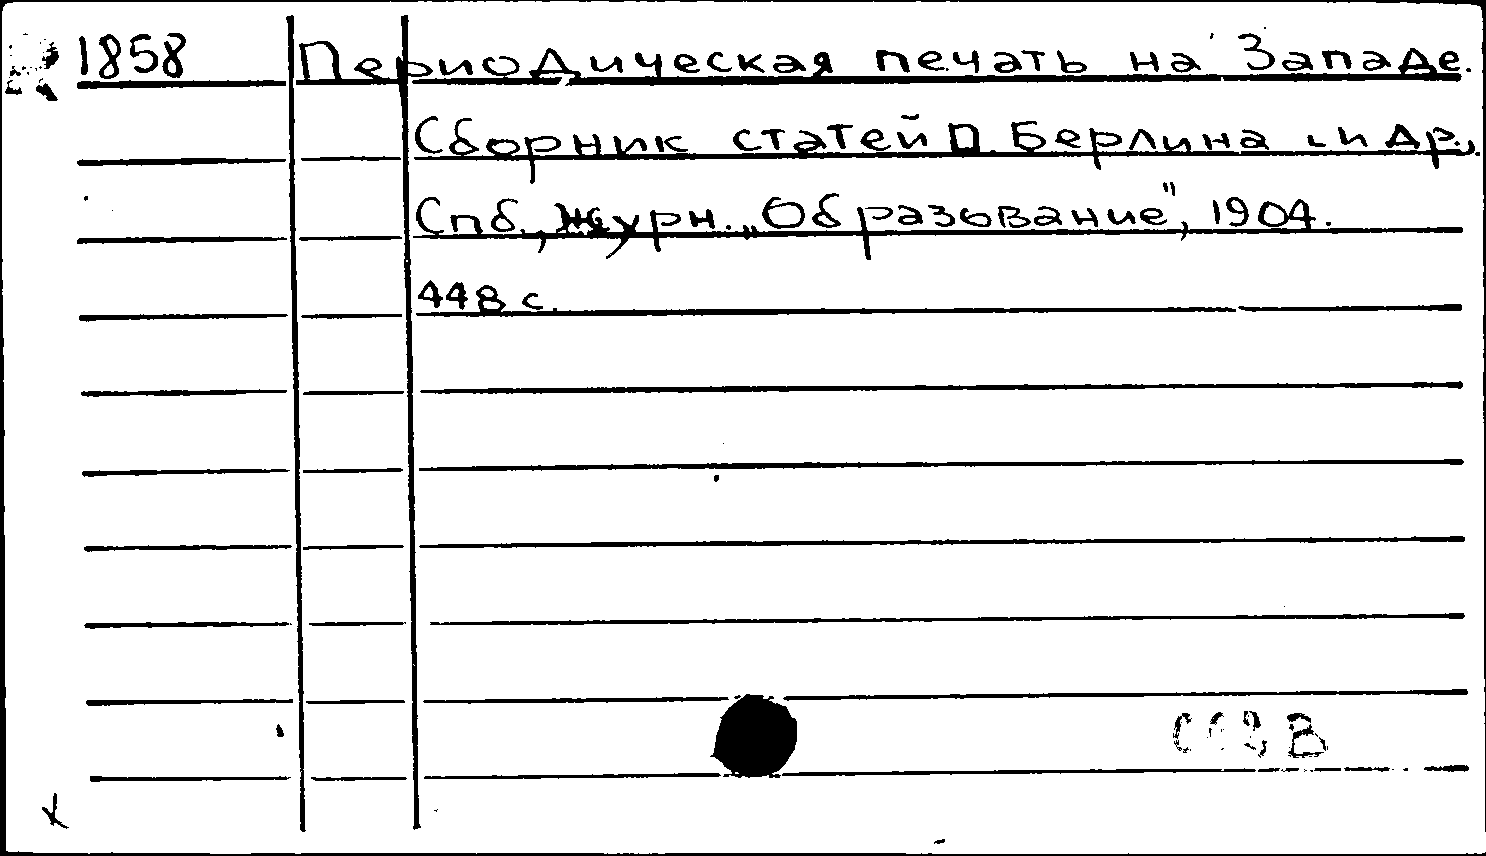 1858 Периодическая печать на Западе.
Сборник статей П. Берлина и др.,
Спб., журн. „Образование", 1904.
448 с.